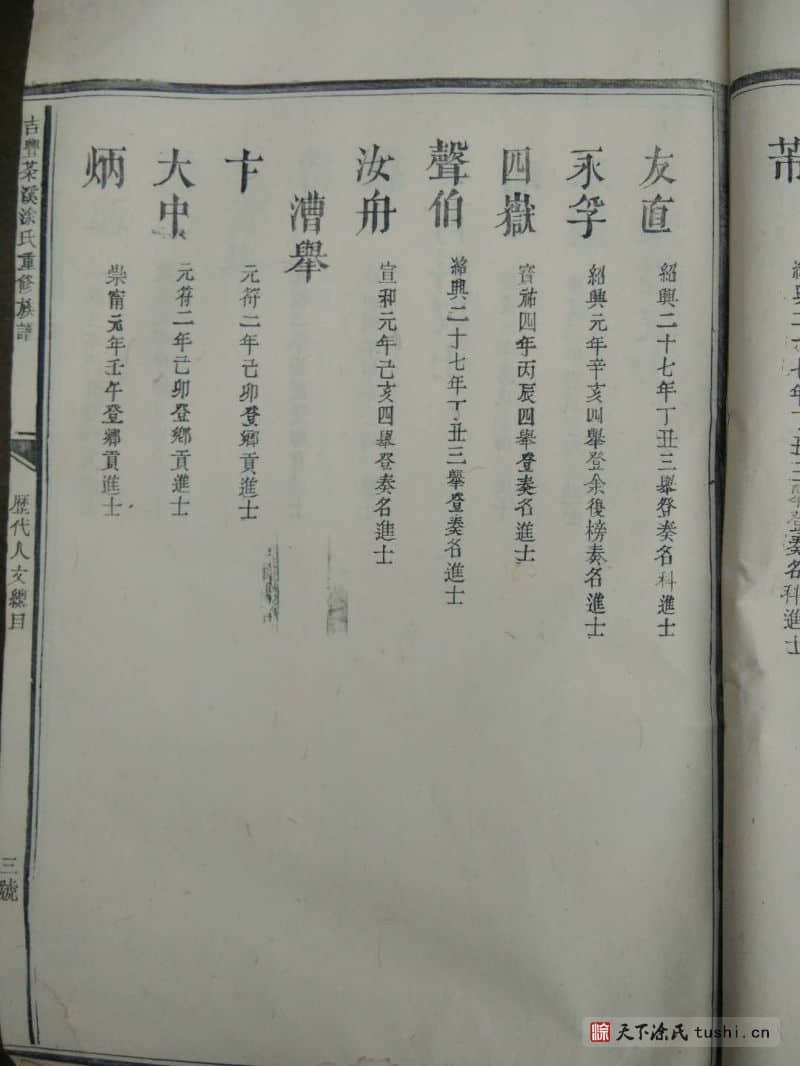 友直 紹興二十七年丁丑三舉登奏名科進士
永孚 紹興元年辛亥四舉登余復榜奏名進士
四嶽 寶祐四年丙辰四舉登奏名進士
聲伯 紹興二十七年丁丑三舉登奏名進士
汝舟 宣和元年己亥四舉登奏名進士
漕舉
卞 元符二年己卯登鄉貢進士
大中 元符二年己卯登鄉貢進士
炳 崇甯元年壬午登鄉貢進士
吉豐茶溪涂氏重修族譜
歷代人文總目
三號
天下涂氏 tushi.cn